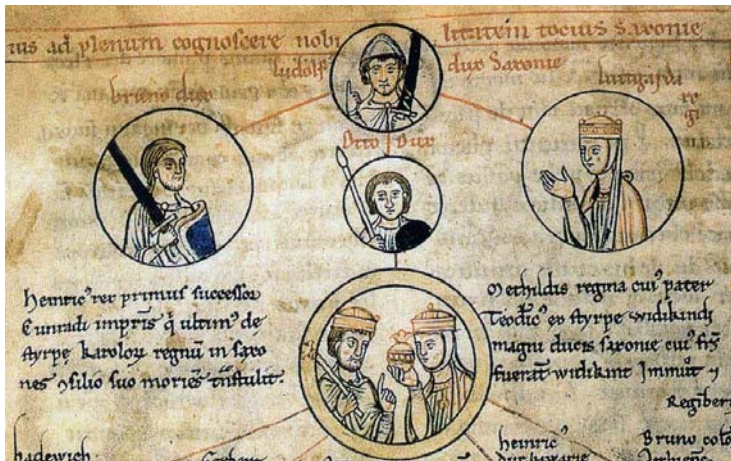 ius ad plenum cognoscere nobi litatem tocius Saxonie
Ludolf dux Saxonie
bruno dux
Liutgarda
regi
Otto dux
heinric' rex primus successor
Cunradi impris q̇ ultim' de
styrpe karoloꝝ regnū in saxo
nes ɔsilio suo moriēs tnstulit.
Methildis regina cui' pater
Teodic' ex styrpe widikindi
magni ducis saxonie cui' frs
fuerat widikint Immut ⁊
Regiber
hadewich
heinric'
dux bawarie
Bruno colo